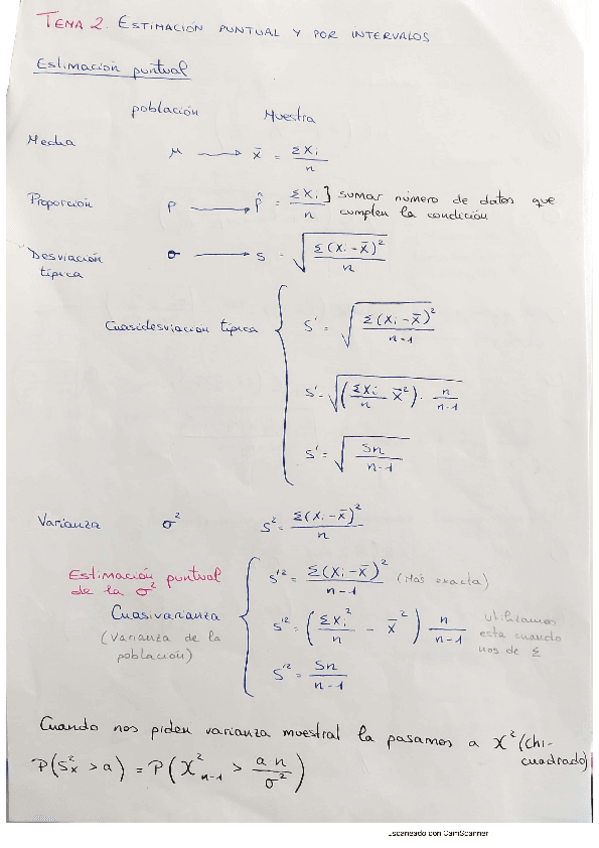 TEMA 2. ESTIMACIÓN PUNTUAL Y POR INTERVALOS
Estimación puntual
población Muestra
Media μ → x̄ = ΣXi / n
Proporción p → p̂ = ΣXi / n ] sumar número de datos que
cumplen la condición
Desviación típica σ → s = √(Σ(Xi - x̄)² / n)
Cuasidesviación típica
s' = √(Σ(Xi - x̄)² / n-1)
s' = √((ΣXi / n x̄²) · n / n-1)
s' = √(Sn / n-1)
Varianza σ² s² = Σ(Xi - x̄)² / n
Estimación puntual
de la σ²
Cuasivarianza
(Varianza de la
población)
s'² = Σ(Xi - x̄)² / n-1 (Más exacta)
s'² = (ΣXi² / n - x̄²) n / n-1 utilizamos
esta cuando
nos de Σ
s'² = Sn / n-1
Cuando nos piden varianza muestral la pasamos a X² (chi-
cuadrado)
P(S²x > a) = P(X²n-1 > a n / σ²)
Escaneado con CamScanner